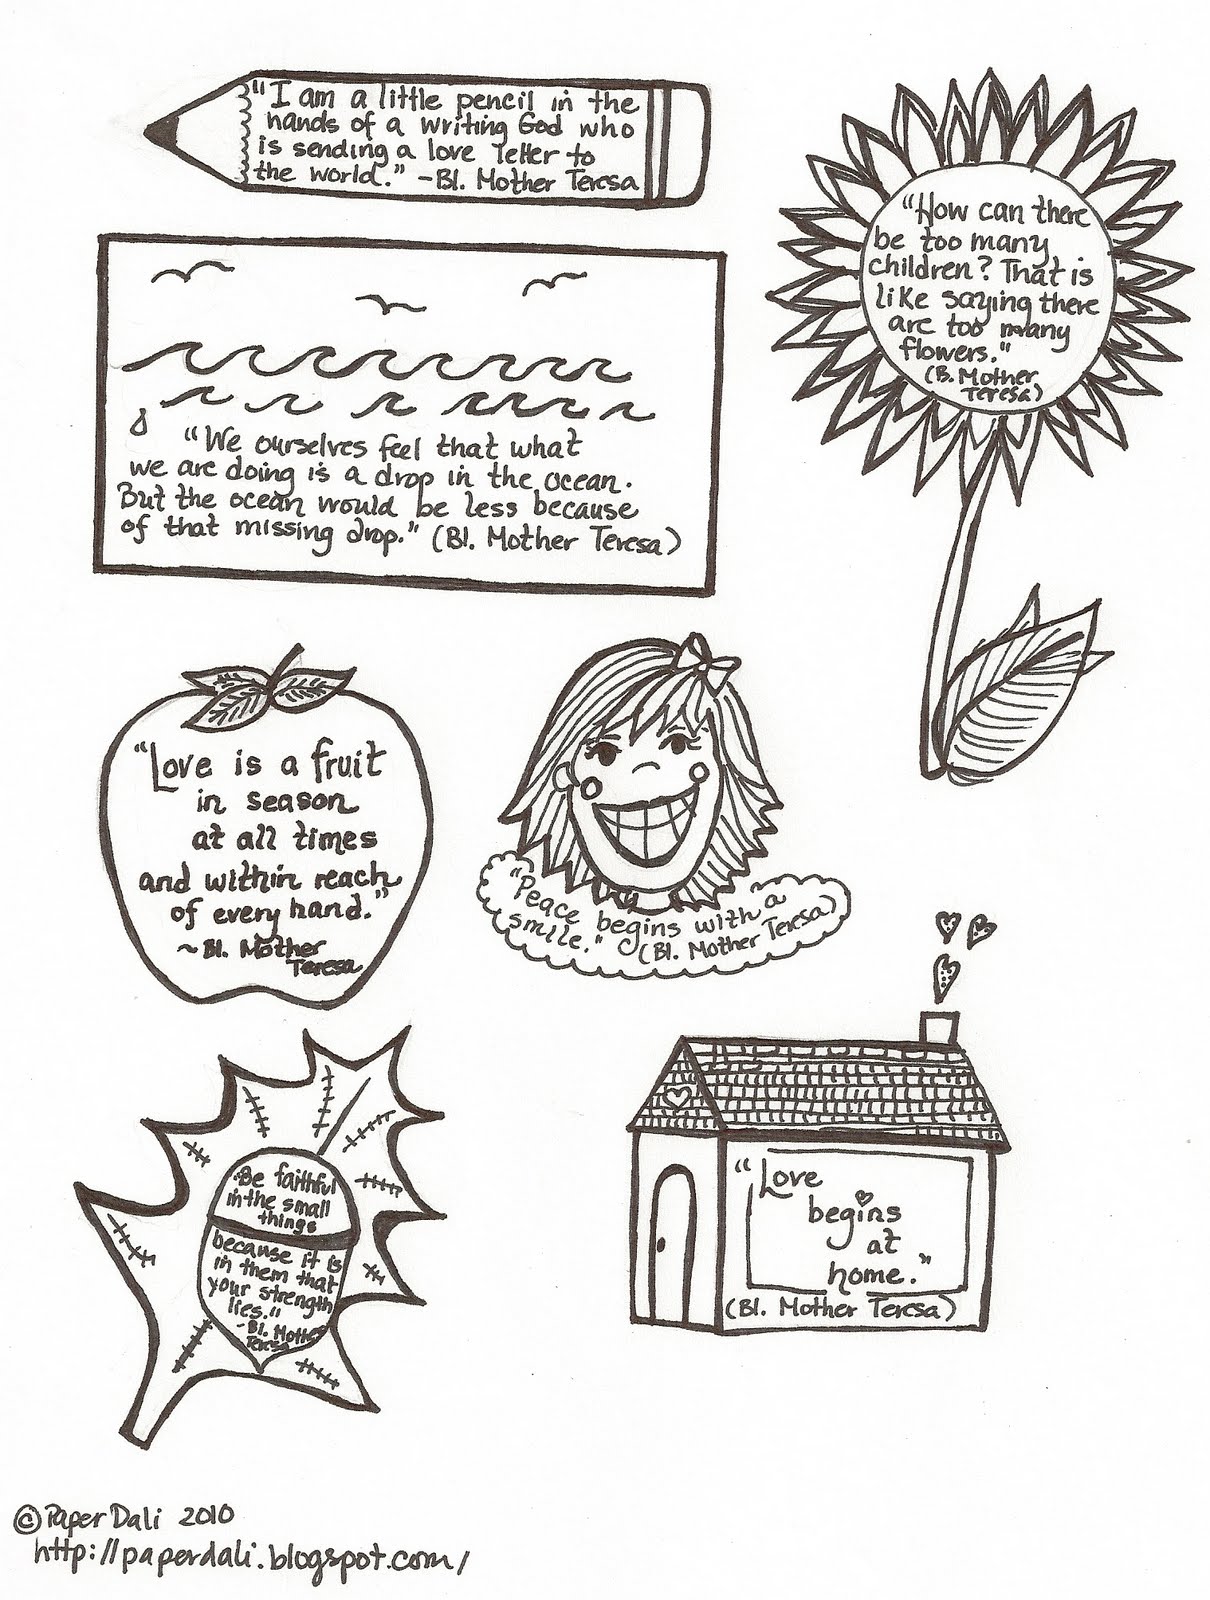 "I am a little pencil in the
hands of a writing God who
is sending a love letter to
the world." -Bl. Mother Teresa
"How can there
be too many
children? That is
like saying there
are too many
flowers."
(B. Mother
Teresa)
"We ourselves feel that what
we are doing is a drop in the ocean.
But the ocean would be less because
of that missing drop." (Bl. Mother Teresa)
"Love is a fruit
in season
at all times
and within reach
of every hand."
~Bl. Mother
Teresa
"Peace begins with a
smile." (Bl. Mother Teresa)
"Be faithful
in the small
things
because it is
in them that
your strength
lies."
-Bl. Mother
Teresa
"Love
begins
at
home."
(Bl. Mother Teresa)
©Paper Dali 2010
http://paperdali.blogspot.com/